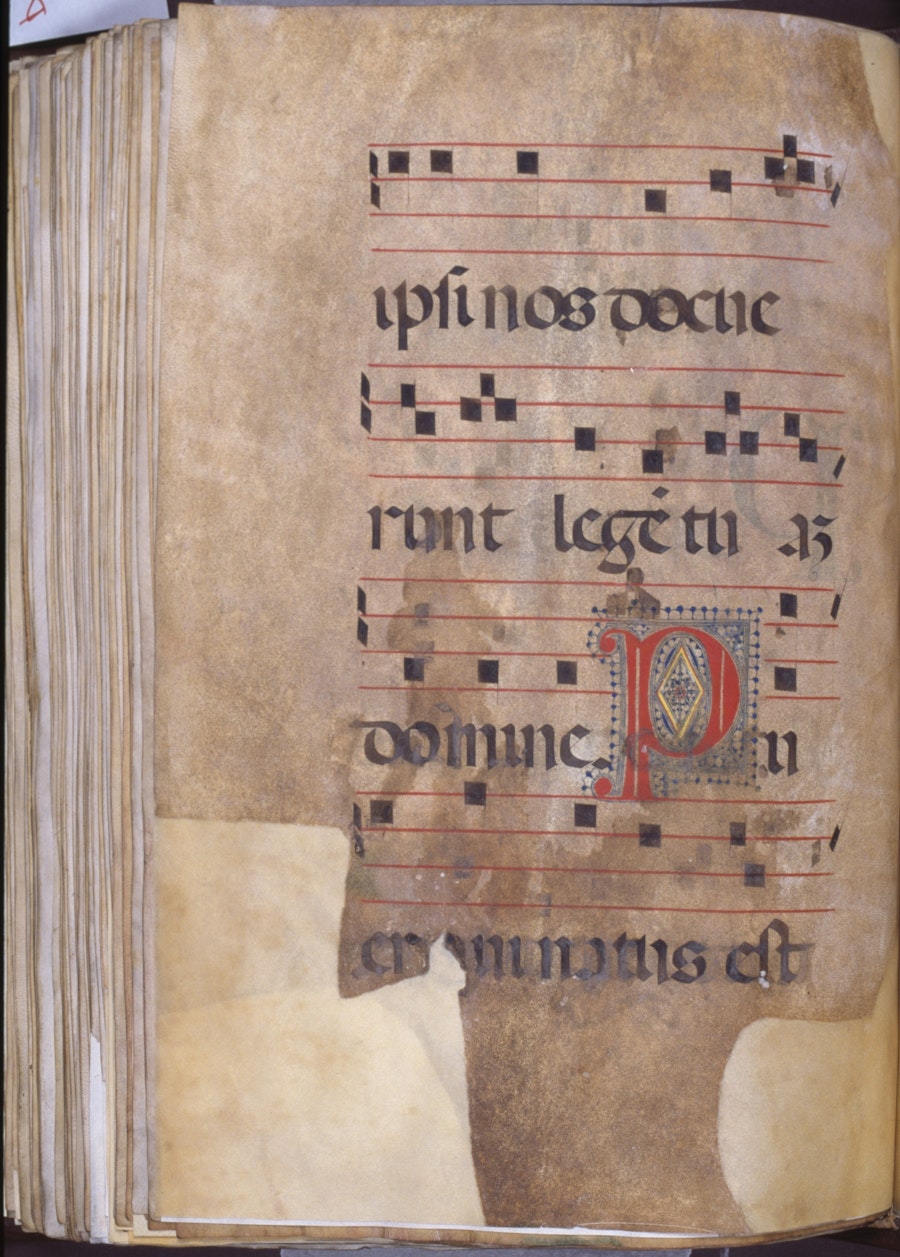 ipſi nos docue
runt legē tu aꝫ
domine. Pu
er natus eſt